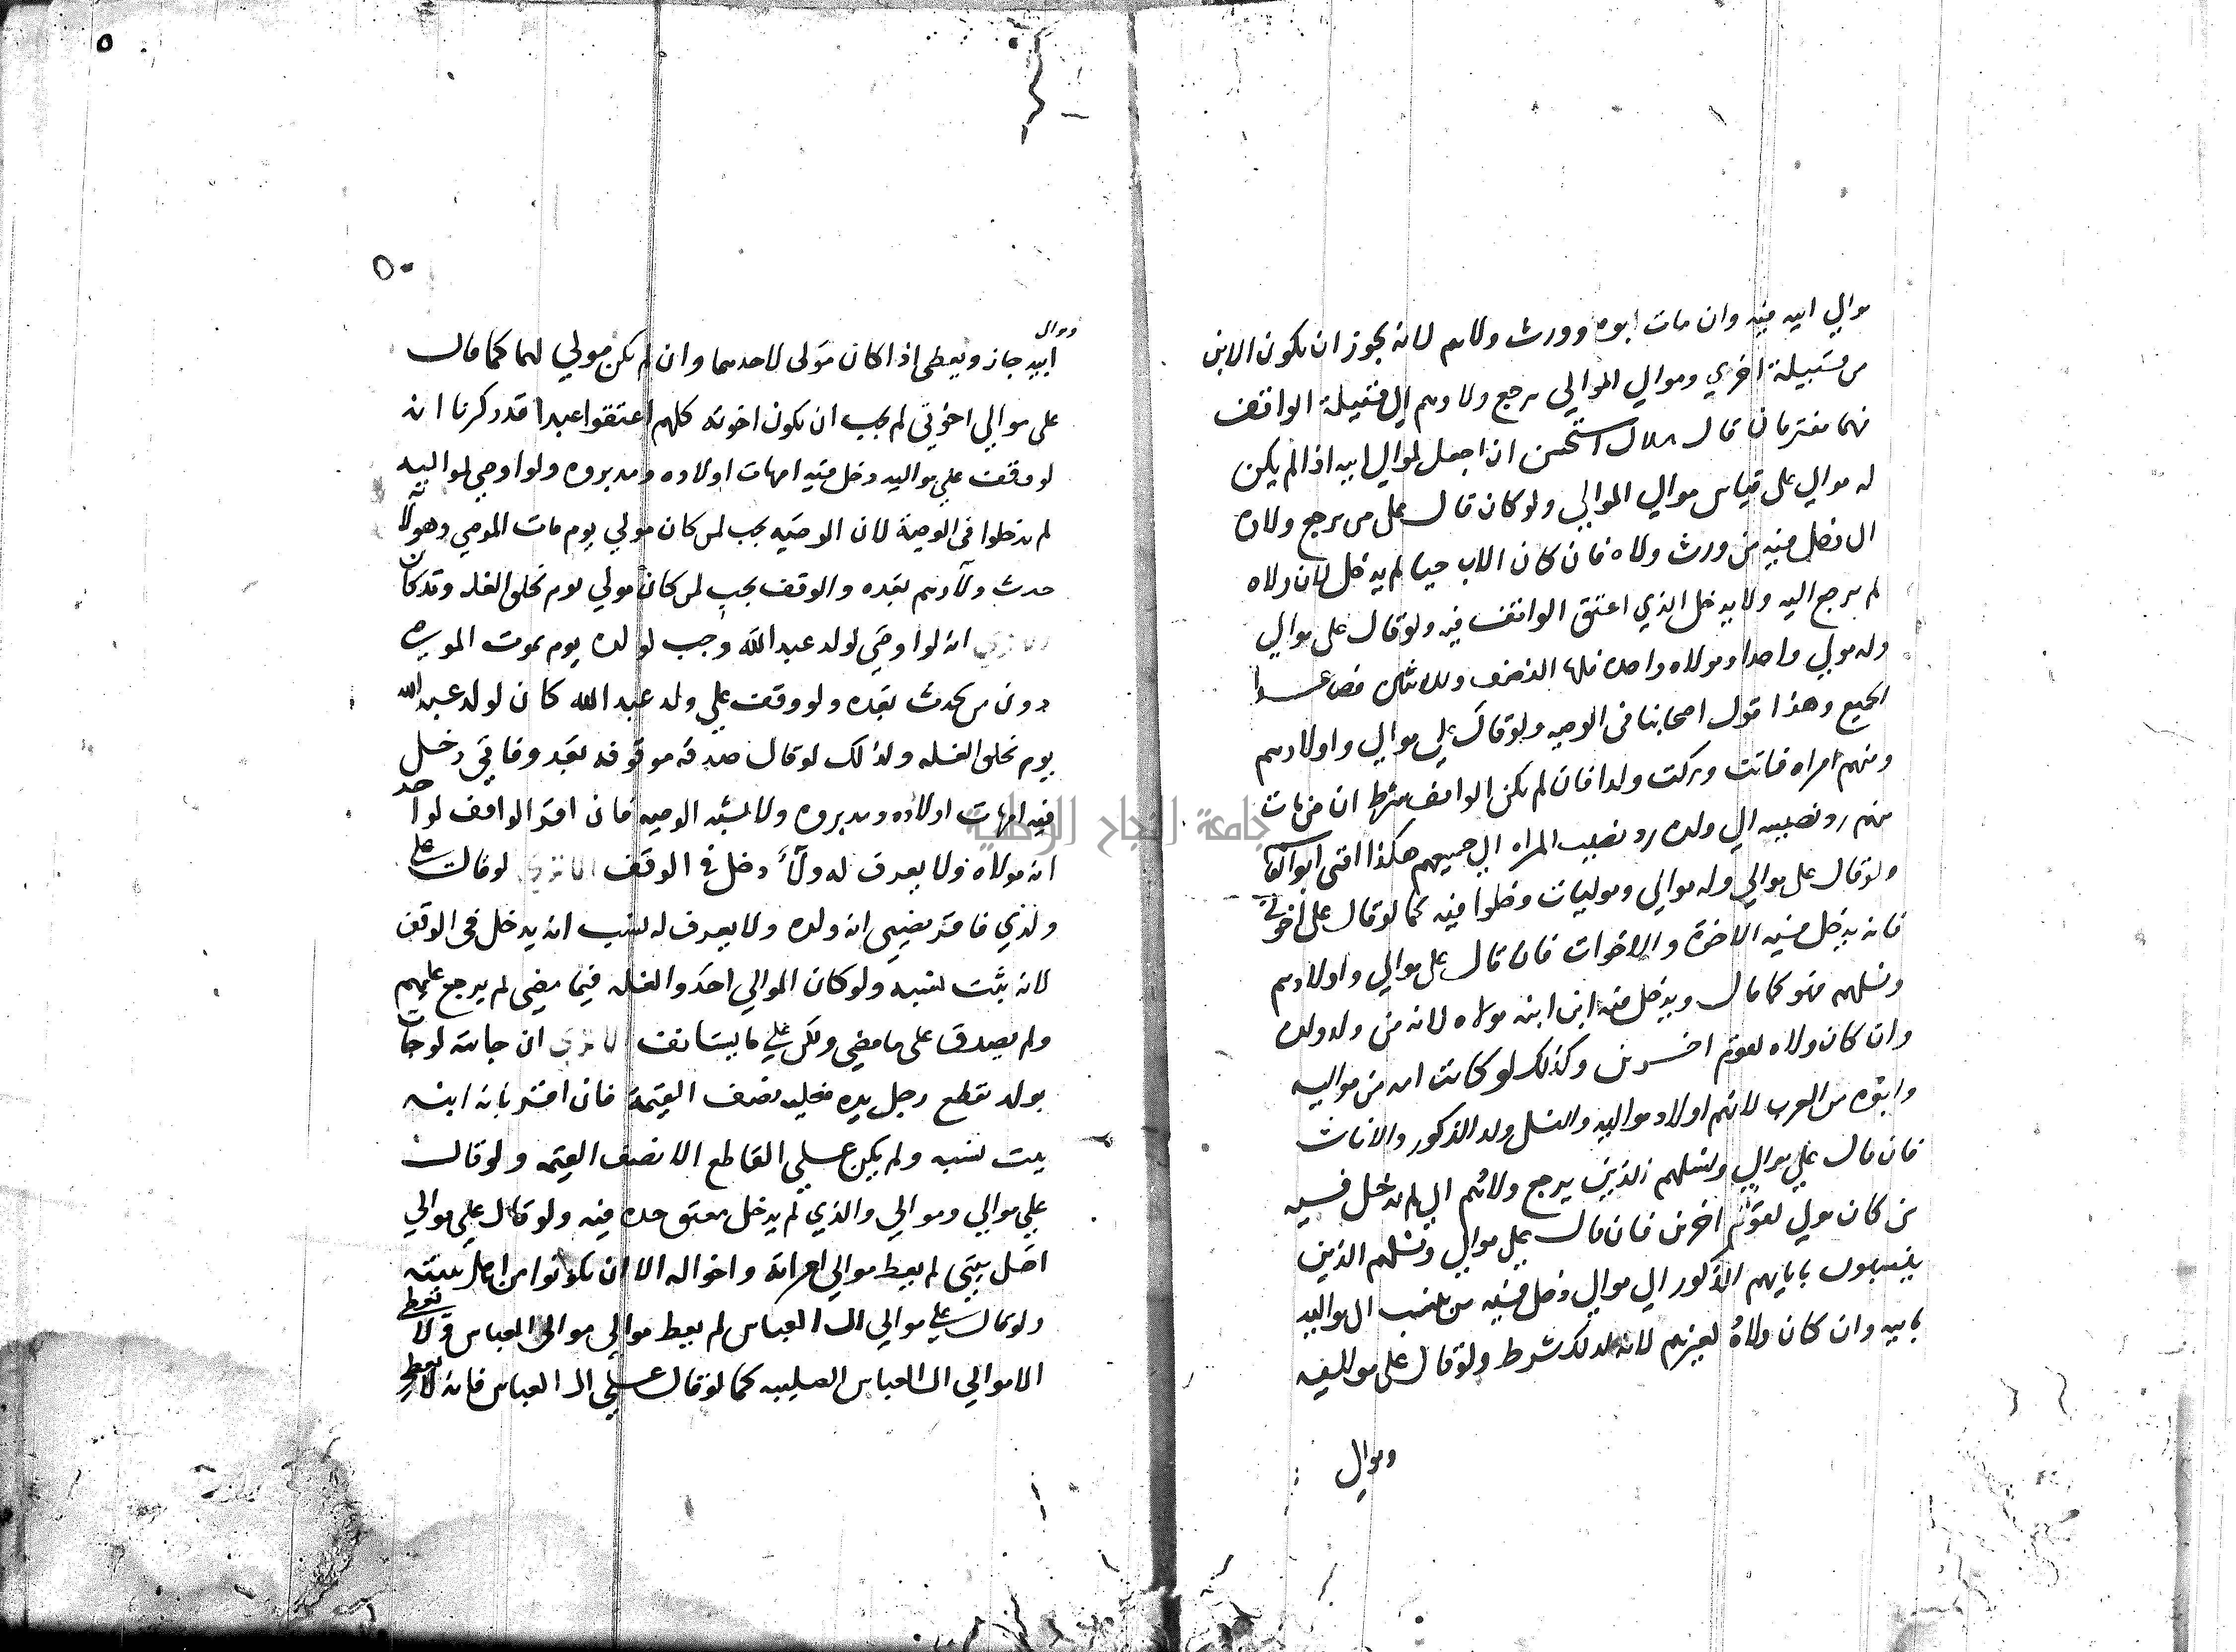 موالي ابيه فيه وان مات ابوه وورث ولاهم لانه يجوز ان يكون الابن
من قبيلة اخري وموالي الموالي يرجع ولاوهم الي قبيلة الواقف
فهما مفترقان قال هلال استحسن ان اجعل لموالي ابيه اذا لم يكن
له موالي علي قياس موالي الموالي ولو كان قال علي من يرجع ولاه
الي دخل فيه من ورث ولاه فان كان الاب حيا لم يدخل لان ولاه
لم يرجع اليه ولا يدخل الذي اعتق الواقف فيه ولو قال علي موالي
وله مولي واحدا ومولاه واحده فلها النصف وللاثنين فصاعدا
الجميع وهذا قول اصحابنا في الوصيه ولو قال علي موالي واولادهم
ومنهم امراه فماتت وتركت ولدا فان لم يكن الواقف شرط ان من مات
منهم رد نصيبه الي ولده رد نصيب المراه الي جميعهم هكذا افتي ابو القاسم
ولو قال علي موالي وله موالي وموليات دخلوا فيه كما لو قال علي اخوتي
فانه يدخل فيه الاخوة والاخوات فان قال علي موالي واولادهم
ونسلهم فهو كما قال ويدخل فيه ابن ابنه مولاه لانه من ولد ولده
وان كان ولاه لقوم اخرين وكذلك لو كانت امه من مواليه
وابوه من العرب لانهم اولاد مواليه والنسل ولد الذكور والاناث
فان قال علي موالي ونسلهم الذين يرجع ولائهم الي لم يدخل فيه
من كان مولي لقوم اخرين فان قال علي موالي ونسلهم الذين
ينسبون بابايهم الذكور الي موالي دخل فيه من ينسب الي مواليه
بابيه وان كان ولاهُ لغيرهم لانه لذلك شرط ولو قال علي مواليه
وموالي
٥
٥٠
وموالي
ابيه جاز ويعطي اذا كان مولي لاحدهما وان لم يكن مولي لهما كما قال
علي موالي اخوتي لم يجب ان يكون اخوته كلهم اعتقوا عبدا قد ذكرنا انه
لو وقف علي مواليه دخل فيه امهات اولاده ومدبروه ولو اوصي لمواليه
لم يدخلوا في الوصية لان الوصيه يجب لمن كان مولي يوم مات الموصي وهولآ
حدث ولآوهم بعده والوقف يجب لمن كان مولي يوم تخلق الغله وقد كان
انه لو اوصي لولد عبد الله وجب لولده يوم يموت الموصي
دون من يحدث بعده ولو وقف علي ولد عبد الله كان لولد عبد الله
يوم تخلق الغله ولذلك لو قال صدقه موقوفه بعد وفاتي دخل
فيه امهات اولاده ومدبروه ولا يشبه الوصيه فان اقر الواقف لواحد
انه مولاه ولا يعرف له ولآء دخل في الوقف الا تري لو قال علي
ولدي فاقر بصبي انه ولده ولا يعرف له نسب انه يدخل في الوقف
لانه يثبت نسبه ولو كان الموالي احدو الغله فيما مضي لم يرجع عليهم
ولم يصدق علي ما مضي ولكن علي ما يستانف الا تري ان جاريته لو جات
بولد فقطع رجل يده فعليه نصف القيمة فان اقر بانه ابنه
يثبت نسبه ولم يكن علي القاطع الا نصف القيمه ولو قال
علي موالي وموالي والدي لم يدخل معتق جده فيه ولو قال علي موالي
اهل بيتي لم يعط موالي امراته واخواله الا ان يكونوا من اهل بيته
ولو قال علي موالي ال العباس لم يعط موالي موالي العباس ولا تعطي
الا موالي ال العباس الصليبه كما لو قال علي ال العباس فانه لا يعطي